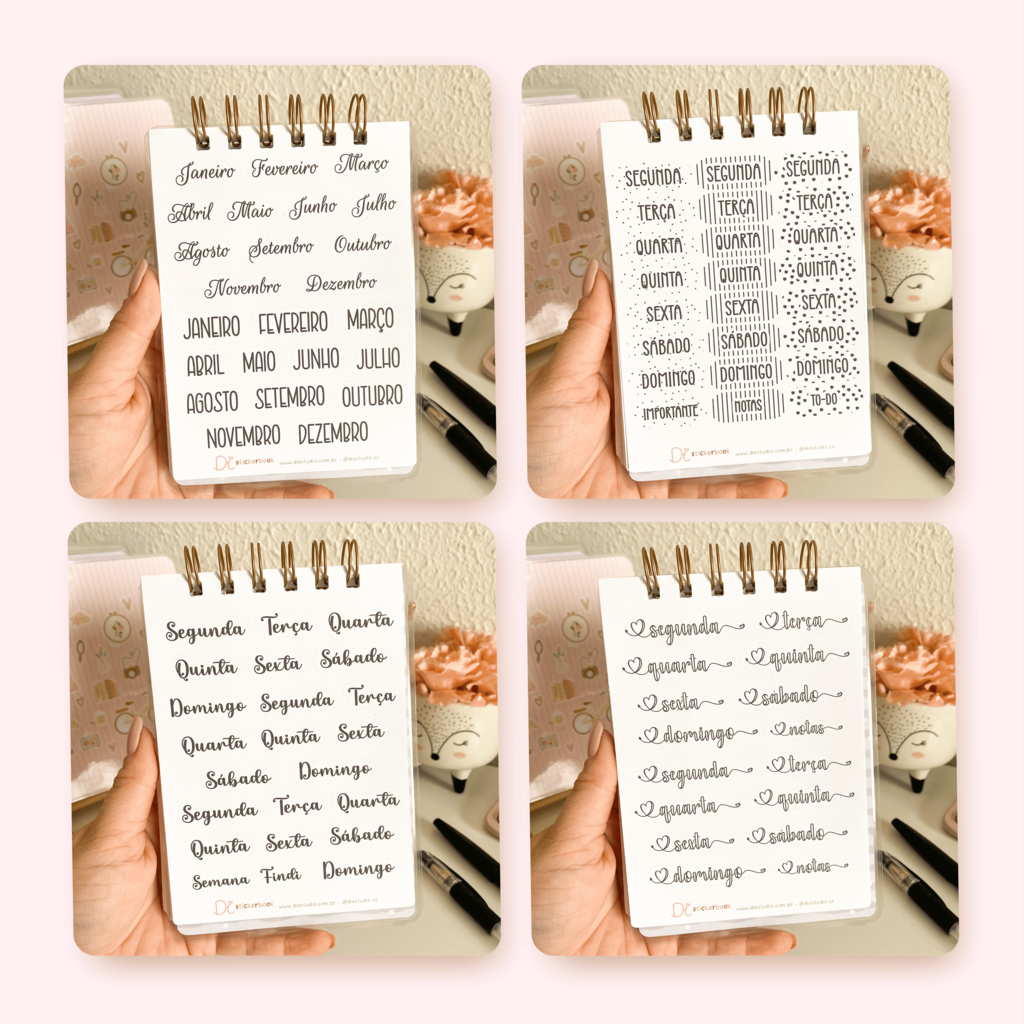 Janeiro Fevereiro Março
Abril Maio Junho Julho
Agosto Setembro Outubro
Novembro Dezembro
JANEIRO FEVEREIRO MARÇO
ABRIL MAIO JUNHO JULHO
AGOSTO SETEMBRO OUTUBRO
NOVEMBRO DEZEMBRO
DE stickerbook www.diestudio.com.br - @diestudio.co
SEGUNDA SEGUNDA SEGUNDA
TERÇA TERÇA TERÇA
QUARTA QUARTA QUARTA
QUINTA QUINTA QUINTA
SEXTA SEXTA SEXTA
SÁBADO SÁBADO SÁBADO
DOMINGO DOMINGO DOMINGO
IMPORTANTE NOTAS TO-DO
DE stickerbook www.diestudio.com.br - @diestudio.co
Segunda Terça Quarta
Quinta Sexta Sábado
Domingo Segunda Terça
Quarta Quinta Sexta
Sábado Domingo
Segunda Terça Quarta
Quinta Sexta Sábado
Semana Findi Domingo
DE stickerbook www.diestudio.com.br - @diestudio.co
segunda terça
quarta quinta
sexta sábado
domingo notas
segunda terça
quarta quinta
sexta sábado
domingo notas
DE stickerbook www.diestudio.com.br - @diestudio.co